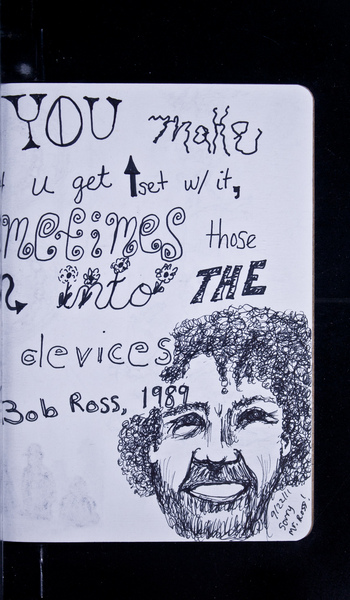 YOU make
u get ↑set w/ it,
metimes those
into THE
devices
Bob Ross, 1989
9/22/11
Sorry
Mr. Ross!